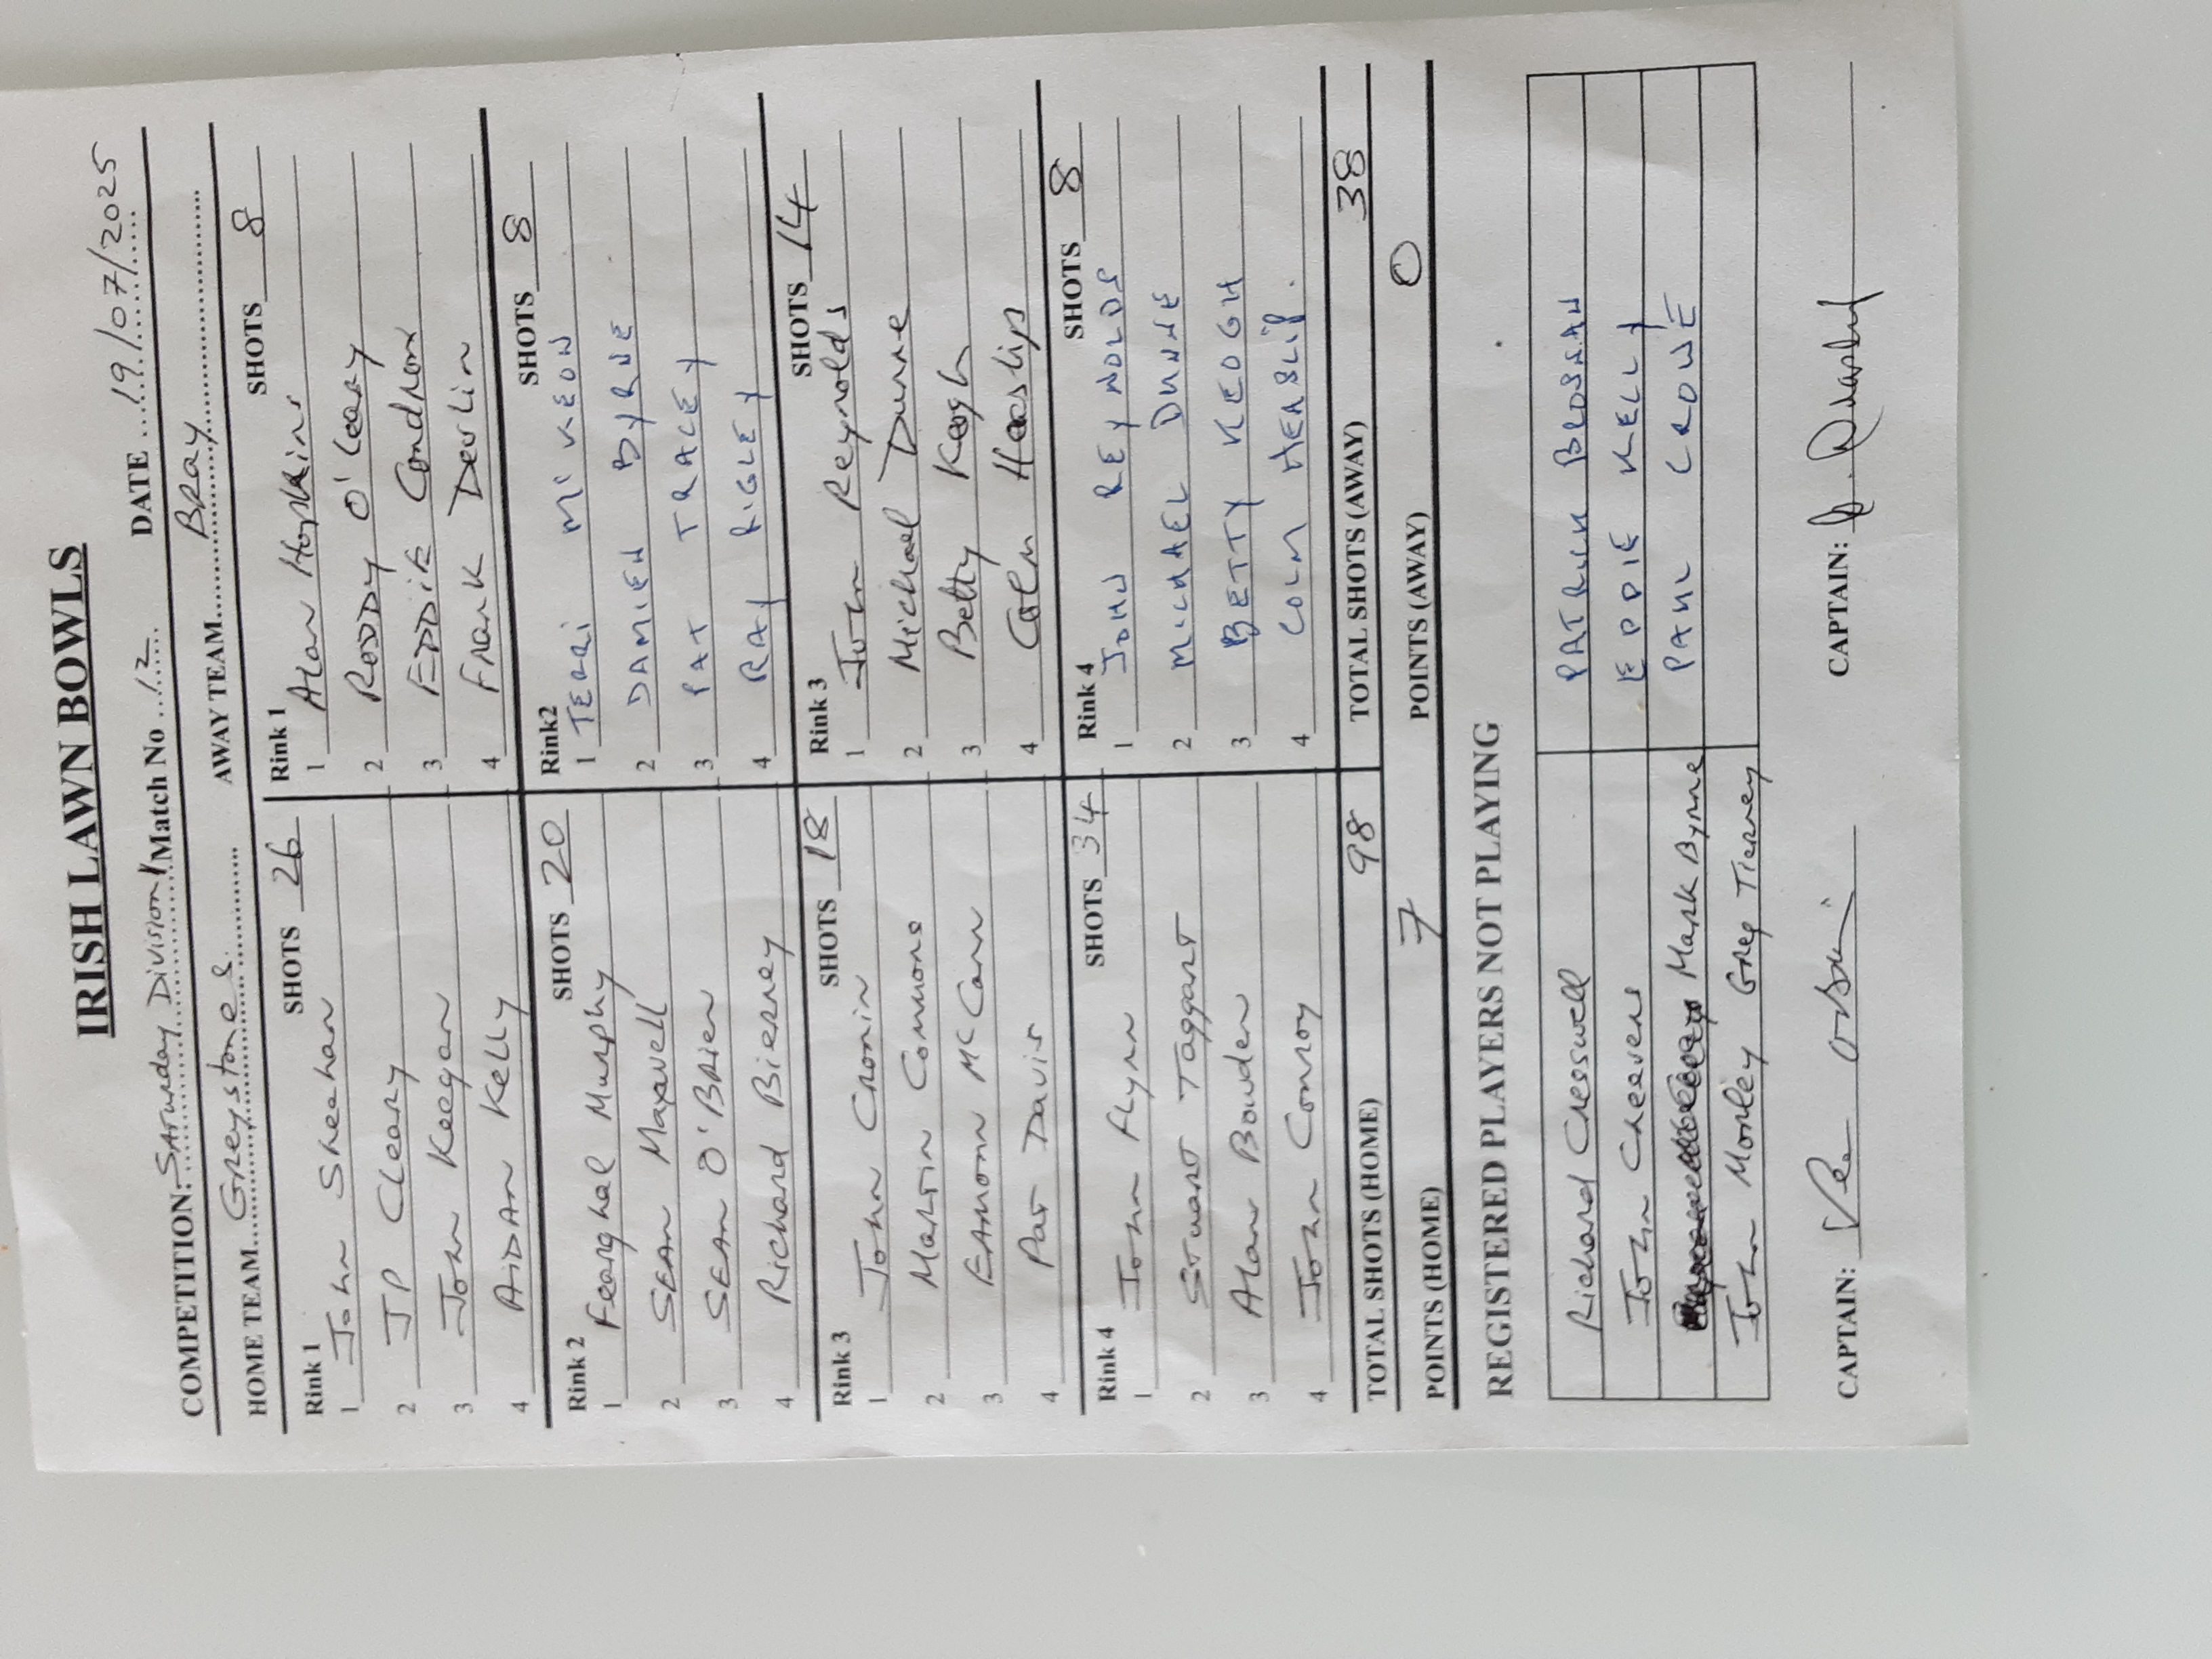 IRISH LAWN BOWLS
COMPETITION: Saturday Division 1 Match No 12 DATE 19/07/2025
HOME TEAM Greystones AWAY TEAM Bray
Rink 1 SHOTS 26
1 John Sheehan
2 JP Cleary
3 John Keegan
4 AiDAN Kelly
Rink 1 SHOTS 8
1 Alan Hopkins
2 RODDY O'Leary
3 EDDIE Condron
4 Frank Devlin
Rink 2 SHOTS 20
1 Fearghal Murphy
2 SEAN Maxwell
3 SEAN O'BRien
4 Richard Bierney
Rink2 SHOTS 8
1 TERRI McKEON
2 DAMIEN BYRNE
3 PAT TRACEY
4 RAY RIGLEY
Rink 3 SHOTS 18
1 John Cronin
2 Martin Commons
3 EAMONN McCann
4 Pat Davis
Rink 3 SHOTS 14
1 John Reynolds
2 Michael Dunne
3 Betty Keogh
4 Colm Heaslip
Rink 4 SHOTS 34
1 John Flynn
2 Stuart Taggart
3 Alan Bowden
4 John Conroy
Rink 4 SHOTS 8
1 JOHN REYNOLDS
2 MICHAEL DUNNE
3 BETTY KEOGH
4 COLM HEASLIP.
TOTAL SHOTS (HOME) 98 TOTAL SHOTS (AWAY) 38
POINTS (HOME) 7 POINTS (AWAY) 0
REGISTERED PLAYERS NOT PLAYING
Richard Cresswell PATRICK BROSNAN
John Cheevers EDDIE KELLY
Mark Byrne PAUL CROWE
John Morley Greg Tierney
CAPTAIN: CAPTAIN: